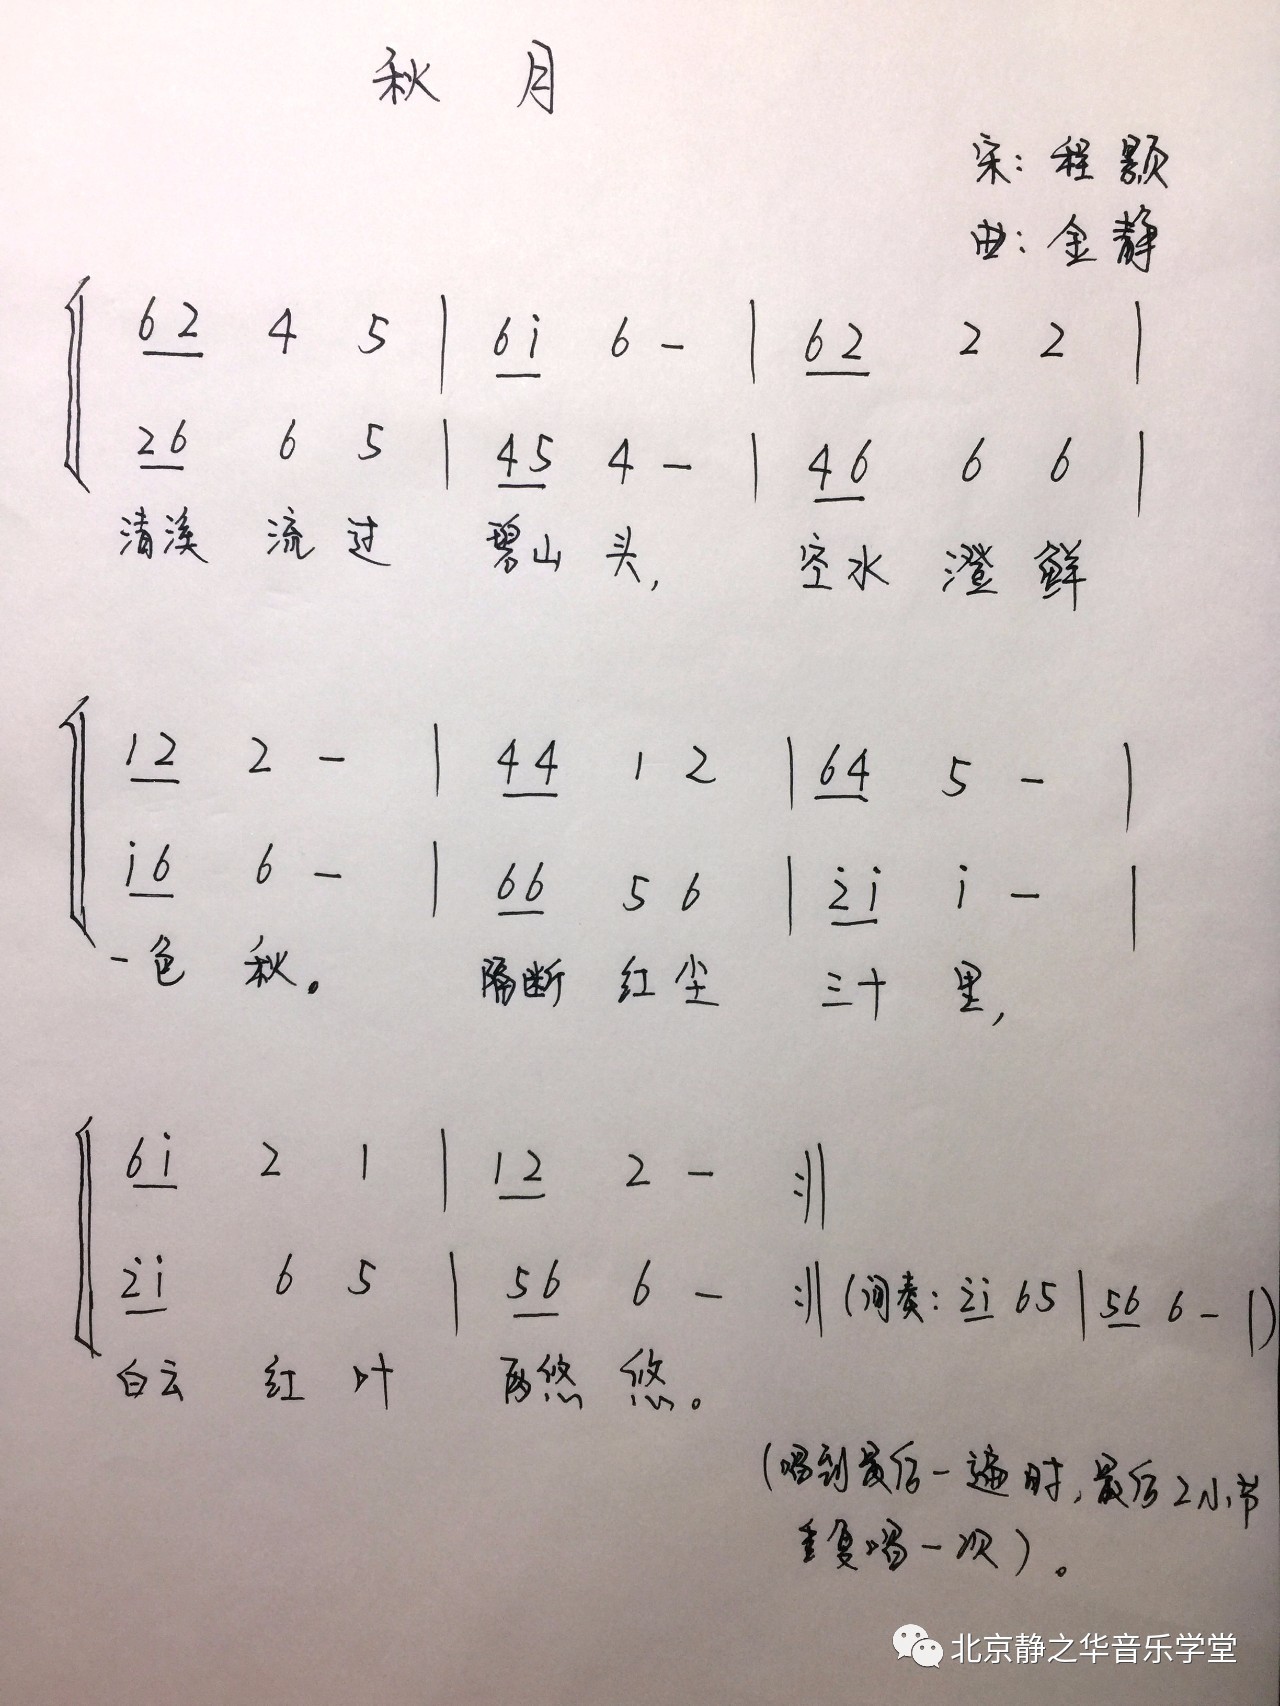 秋 月
宋：程颢
曲：金静
62 4 5 | 6i 6 - | 62 2 2 |
26 6 5 | 45 4 - | 46 6 6 |
清溪 流 过 碧山 头， 空水 澄 鲜
12 2 - | 44 1 2 | 64 5 - |
i6 6 - | 66 5 6 | 2̇i i - |
一色 秋。 隔断 红 尘 三十 里，
6i 2 1 | 12 2 - :||
2̇i 6 5 | 56 6 - :|| (间奏：2̇i 65 | 56 6 - |)
白云 红 叶 两悠 悠。
(唱到最后一遍时，最后2小节
重复唱一次)。
北京静之华音乐学堂